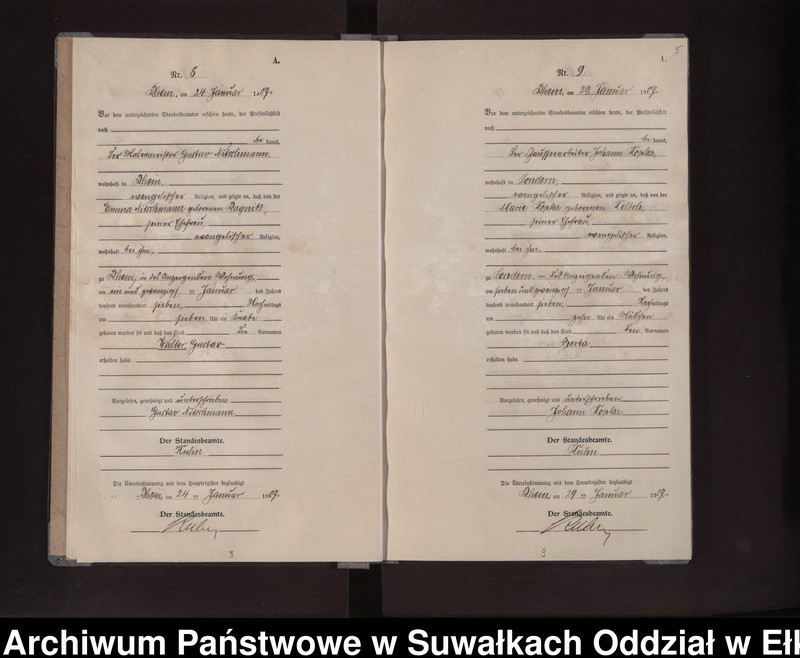 A.
Nr. 8
Rhein, am 24 Januar 1907.
Vor dem unterzeichneten Standesbeamten erschien heute, der Persönlichkeit
nach
be kannt,
der Malermeister Gustav
wohnhaft in Rhein,
evangelischer Religion, und zeigte an, daß von der
Emma geborenen
seiner Ehefrau,
evangelischer Religion,
wohnhaft bei ihm,
zu Rhein, in der Wohnung,
am ein und zwanzigsten Januar des Jahres
tausend neunhundert sieben, Nachmittags
um sieben Uhr ein Knabe
geboren worden sei und daß das Kind die Vornamen
Walter Gustav
erhalten habe.
Vorgelesen, genehmigt und unterschrieben
Gustav
Der Standesbeamte.
Kuhn
Die Übereinstimmung mit dem Hauptregister beglaubigt
Rhein, am 24 ten Januar 1907.
Der Standesbeamte.
Kuhn
8
5
A.
Nr. 9.
Rhein, am 29 Januar 1907.
Vor dem unterzeichneten Standesbeamten erschien heute, der Persönlichkeit
nach
be kannt,
der Johann Kopka,
wohnhaft in
evangelischer Religion, und zeigte an, daß von der
Marie Kopka geborenen
seiner Ehefrau
evangelischer Religion,
wohnhaft bei ihm,
zu in der Wohnung,
am sieben und zwanzigsten Januar des Jahres
tausend neunhundert sieben, mittags
um zehn Uhr ein Mädchen
geboren worden sei und daß das Kind den Vornamen
Berta
erhalten habe.
Vorgelesen, genehmigt und unterschrieben
Johann Kopka
Der Standesbeamte.
Kuhn
Die Übereinstimmung mit dem Hauptregister beglaubigt
Rhein, am 29 ten Januar 1907.
Der Standesbeamte.
Kuhn
9
Archiwum Państwowe w Suwałkach Oddział w Ełk